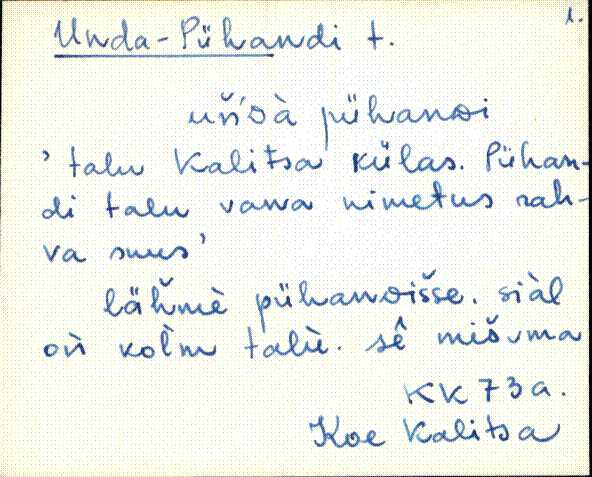 1.
Unda-Pühandi t.
uńᴅà pühanᴅi
' talu Kalitsa külas. Pühan-
di talu vana nimetus rah-
va suus'
lähmè pühanᴅišše. siàl
oǹ kolm talù. sê
KK 73a.
Koe Kalitsa